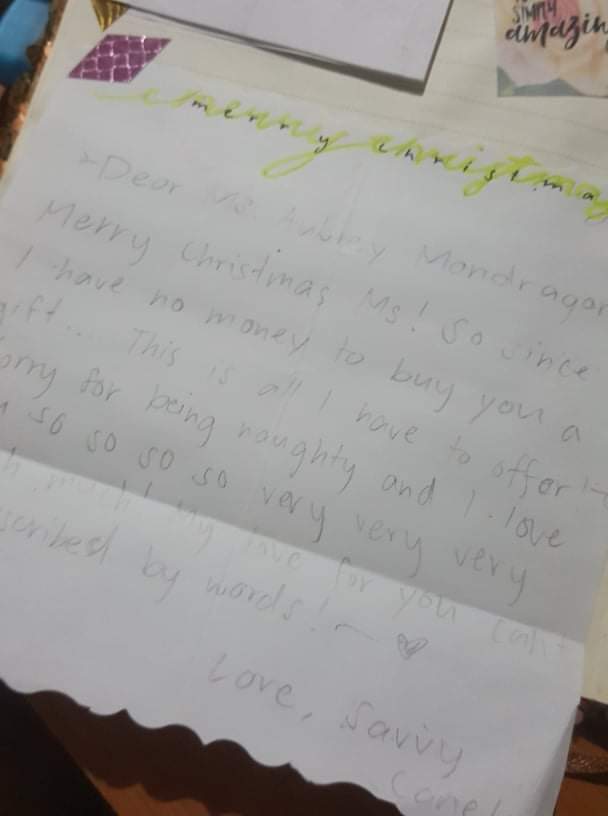 SIMPLY
amazin
merry christmas
Dear Ms. Aubrey Mondragon
Merry Christmas Ms! So since
I have no money to buy you a
gift... This is all I have to offer!~
orry for being naughty and I love
so so so so very very very
much! My love for you can't
scribed by words!~ ♥
Love, Savvy